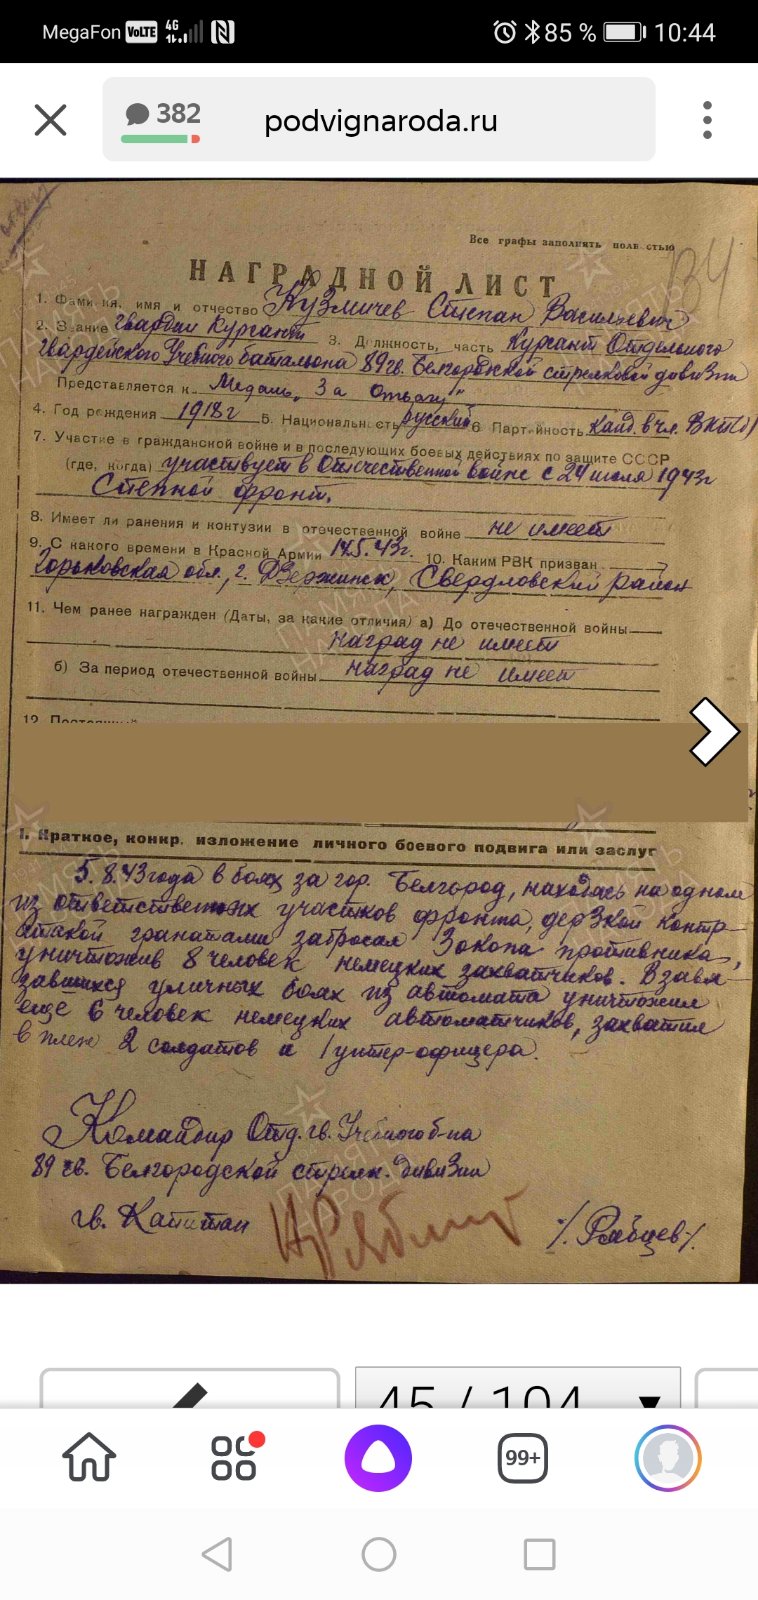 MegaFon VoLTE 4G 85 % 10:44
382 podvignaroda.ru
Все графы заполнять полностью
В4
НАГРАДНОЙ ЛИСТ
1. Фамилия, имя и отчество Кузмичев Степан Василиевич
2. Звание гвардии Курсант 3. Должность, часть Курсант Отдельного
Гвардейского Учебного батальона 89 гв. Белгородской стрелковой дивизии
Представляется к Медаль „За Отвагу"
4. Год рождения 1918 г 5. Национальность русский 6 Партийность Канд. в чл. ВКП(б)
7. Участие в гражданской войне и в последующих боевых действиях по защите СССР
(где, когда) участвует в Отечественной войне с 24 июля 1943 г
Степной фронт.
8. Имеет ли ранения и контузии в отечественной войне не имеет
9. С какого времени в Красной Армии 17.5.43 г. 10. Каким РВК призван
Горьковская обл., г. Дзержинск, Свердловский район
11. Чем ранее награжден (Даты, за какие отличия) а) До отечественной войны
наград не имеет
б) За период отечественной войны наград не имеет
12. Постоянный
I. Краткое, конкр. изложение личного боевого подвига или заслуг
5.8.43 года в боях за гор. Белгород, находясь на одном
из ответственных участков фронта, дерзкой контр-
атакой гранатами забросал Зокопа противника,
уничтожив 8 человек немецких захватчиков. Взавя-
завшихся уличных боях из автомата уничтожил
еще 6 человек немецких автоматчиков, захватил
в плен 2 солдатов и 1 унтер-офицера.
Командир Отд. гв. Учебного б-на
89 гв. Белгородской стрелк. дивизии
гв. Капитан /Рябцев/.
45 / 104
99+
ПАМЯТЬ НАРОДА